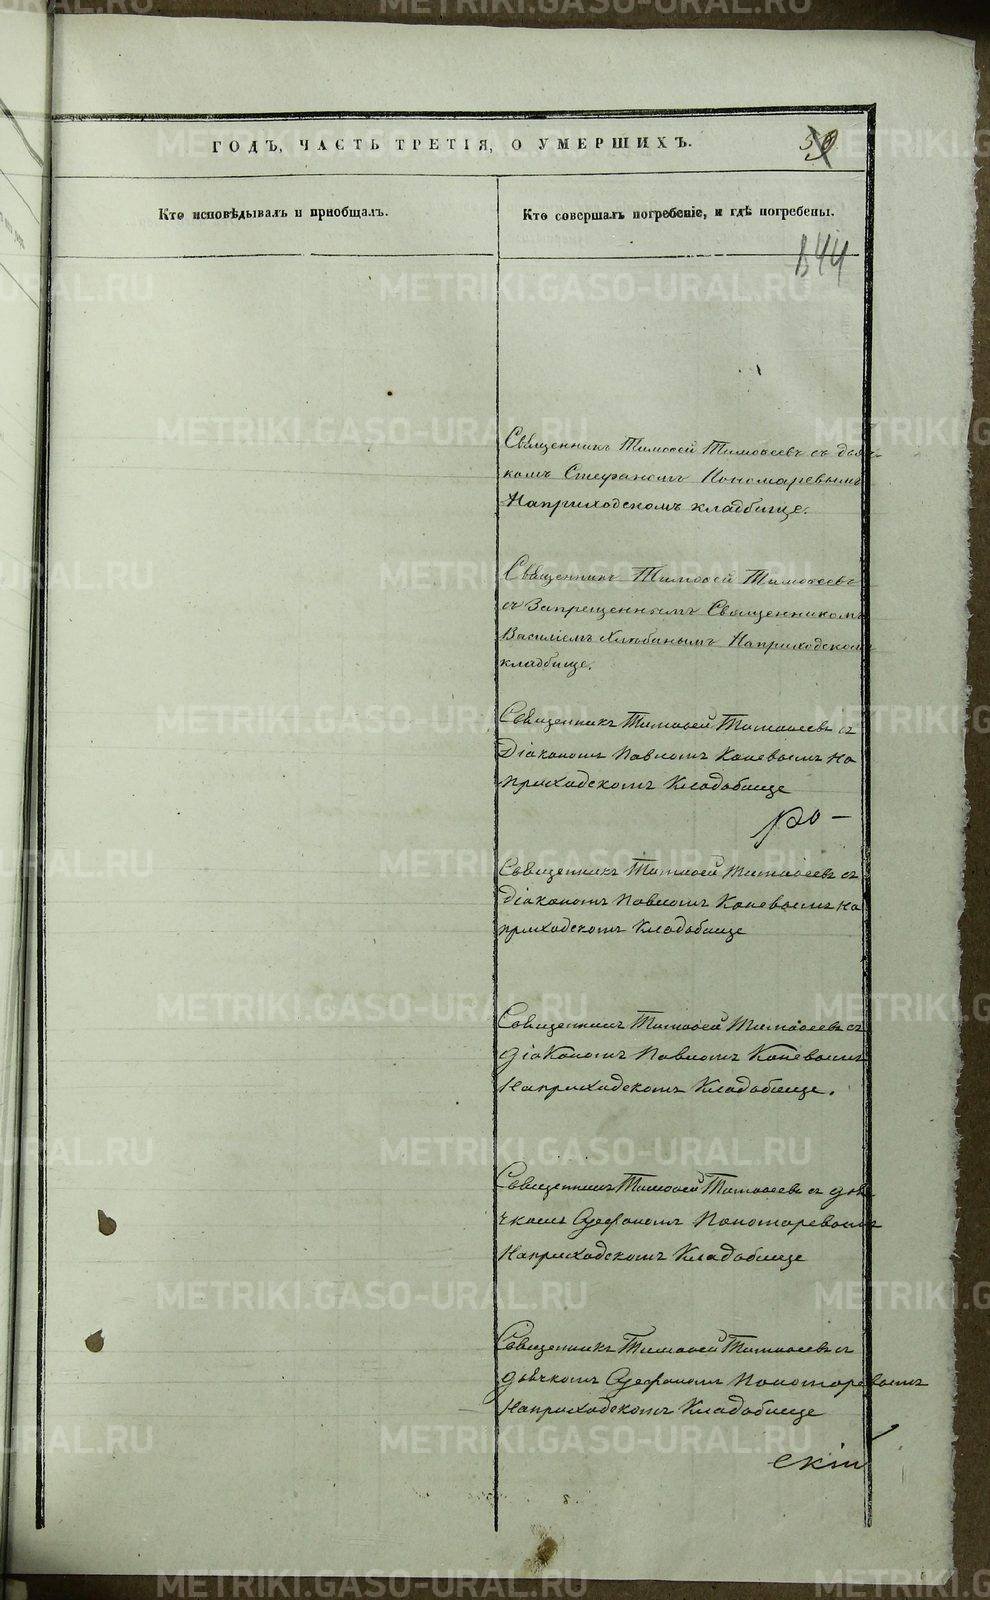 ГОДЪ, ЧАСТЬ ТРЕТІЯ, О УМЕРШИХЪ.
59
Кто исповѣдывалъ и пріобщалъ.
Кто совершалъ погребеніе, и гдѣ погребены.
144
Священникъ Тимоѳей Тимоѳеевъ съ дьяч-
комъ Стефаномъ Пономаревымъ
На приходскомъ кладбище.
Священникъ Тимоѳей Тимоѳеевъ
съ Запрещеннымъ Священникомъ
Василіемъ На приходскомъ
кладбище.
Священникъ Тимоѳей Тимоѳеевъ съ
Діакономъ Павломъ Каневымъ На
приходскомъ Кладбище
ро —
Священникъ Тимоѳей Тимоѳеевъ съ
діакономъ Павломъ Каневымъ На
приходскомъ Кладбище
Священникъ Тимоѳей Тимоѳеевъ съ
діакономъ Павломъ Каневымъ
На приходскомъ Кладбище.
Священникъ Тимоѳей Тимоѳеевъ съ дья
чкомъ Стефаномъ Пономаревымъ
На приходскомъ Кладбище
Священникъ Тимоѳей Тимоѳеевъ съ
дьячкомъ Стефаномъ Пономаревымъ
На приходскомъ Кладбище
скій
METRIKI.GASO-URAL.RU